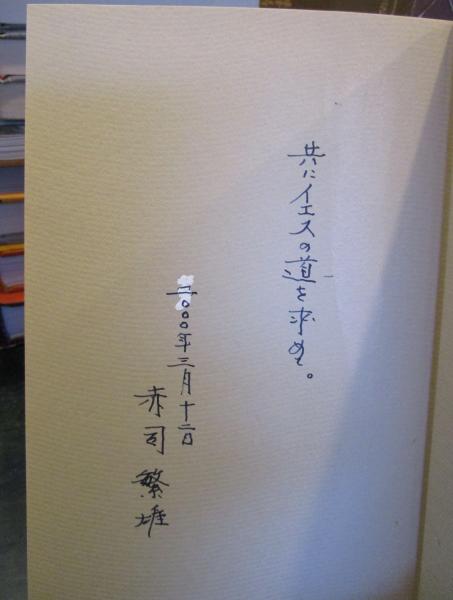 共にイエスの道を求めて。
二〇〇〇年三月十二日
赤司繁雄